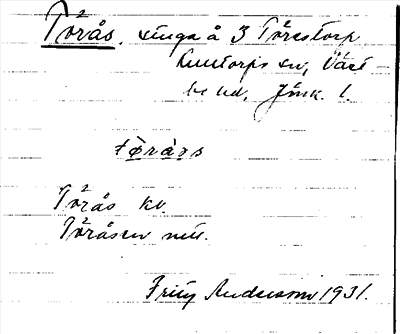 Törås, stuga å 3 Törestorp
Kulltorps sn, Väst-
bo hd, Jönk. l.
töråɔs
Törås kv.
Töråsen neu.
Frity Andersson 1931.